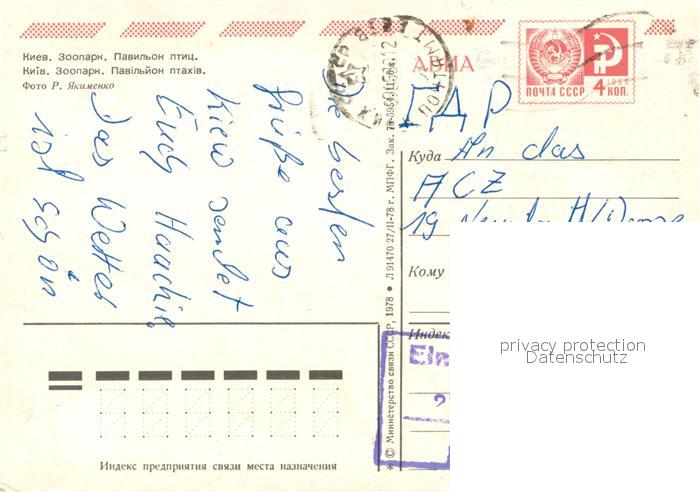 Киев. Зоопарк. Павильон птиц.
Київ. Зоопарк. Павільйон птахів.
Фото Р. Якименко
АВИА
ПОЧТА СССР
4 КОП.
ГДР
Die besten
Grüße aus
Kiew sendet
Euch
Das Wetter
ist schön
Куда An das
ACZ
19
Кому
Индекс
Ein
2
privacy protection
Datenschutz
* © Министерство связи СССР, 1978 • Л 91470 27/II-78 г. МПФГ. Зак. 78-5954.
Индекс предприятия связи места назначения